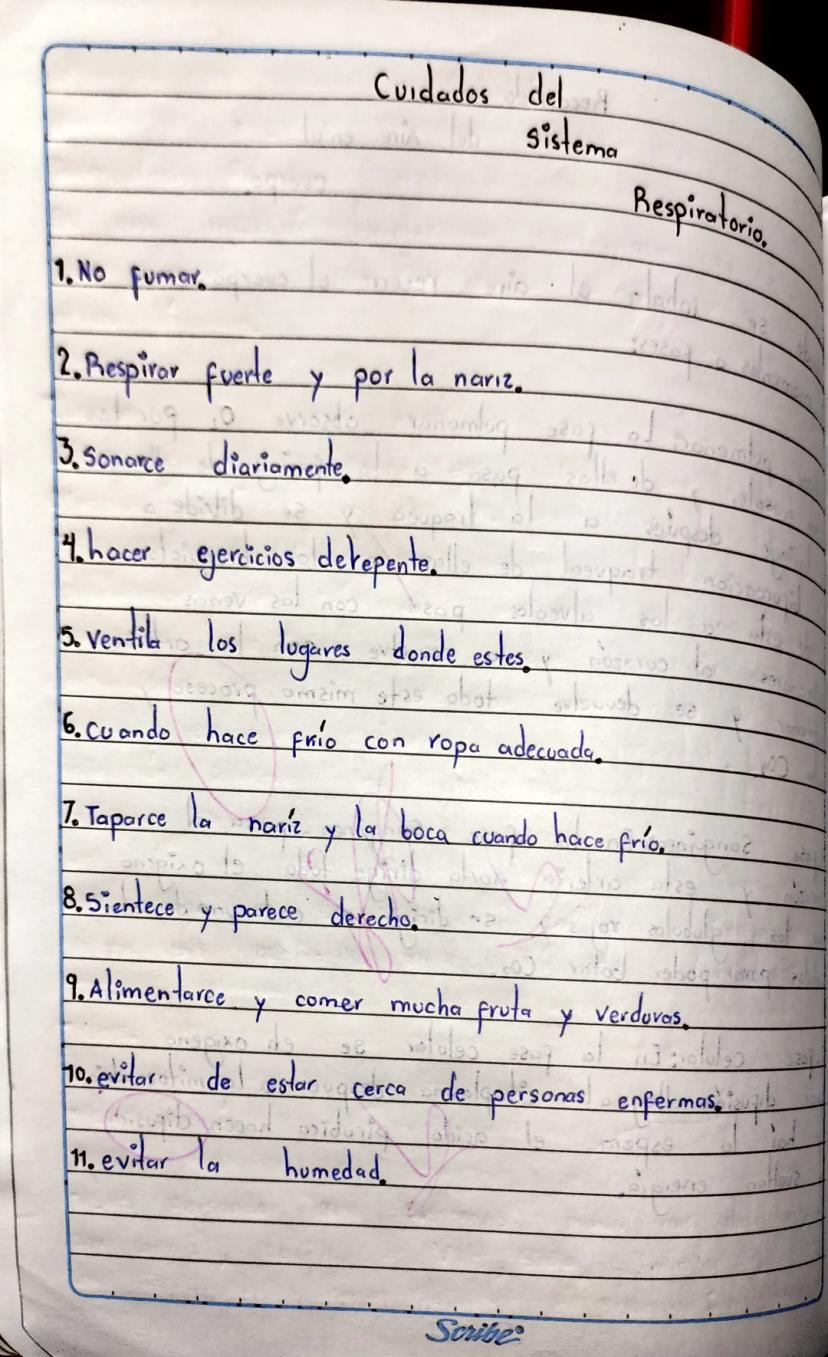 Cuidados del
sistema
Respiratorio.
1. No fumar.
2. Respirar fuerte y por la nariz.
3. Sonarce diariamente.
4. hacer ejercicios derepente.
5. ventila los lugares donde estes.
6. cuando hace frío con ropa adecuada.
7. Taparce la naríz y la boca cuando hace frío.
8. Sientece y parece derecho.
9. Alimentarce y comer mucha fruta y verduras.
10. evitar de estar cerca de personas enfermas.
11. evitar la humedad.
Scribe